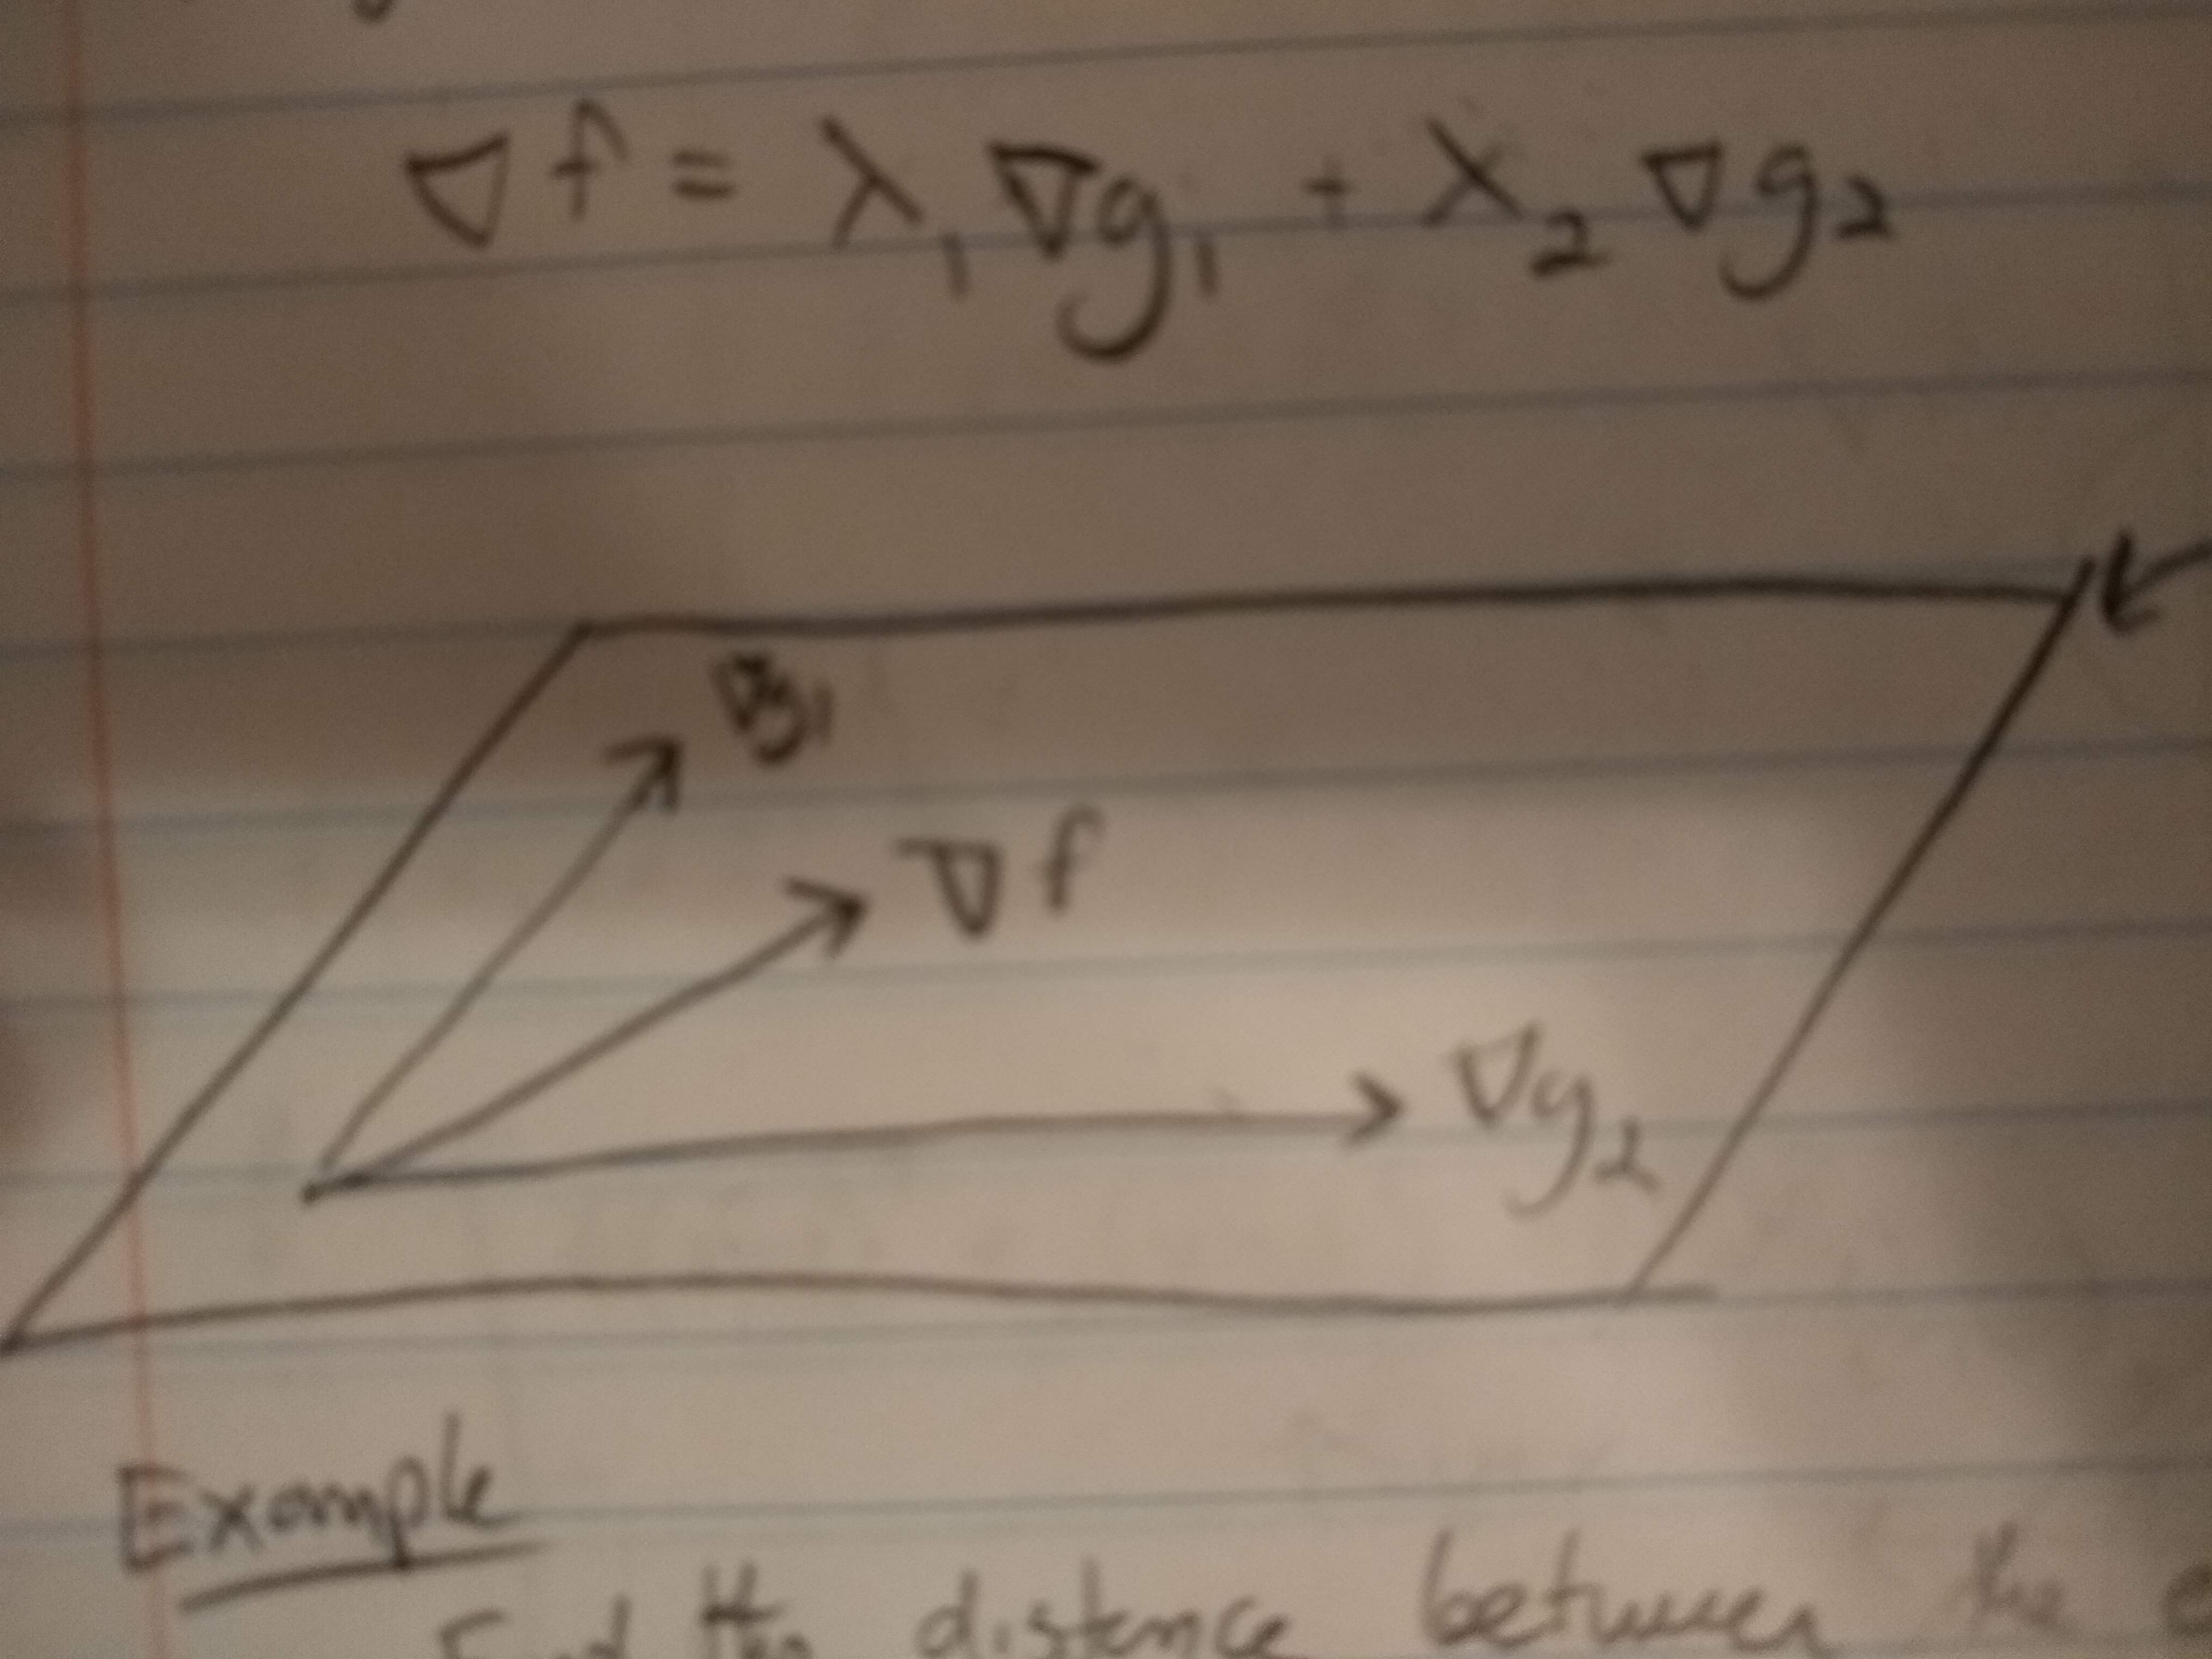 ∇f = λ₁∇g₁ + λ₂∇g₂
∇g₁
∇f
∇g₂
Example
Find the distance between the